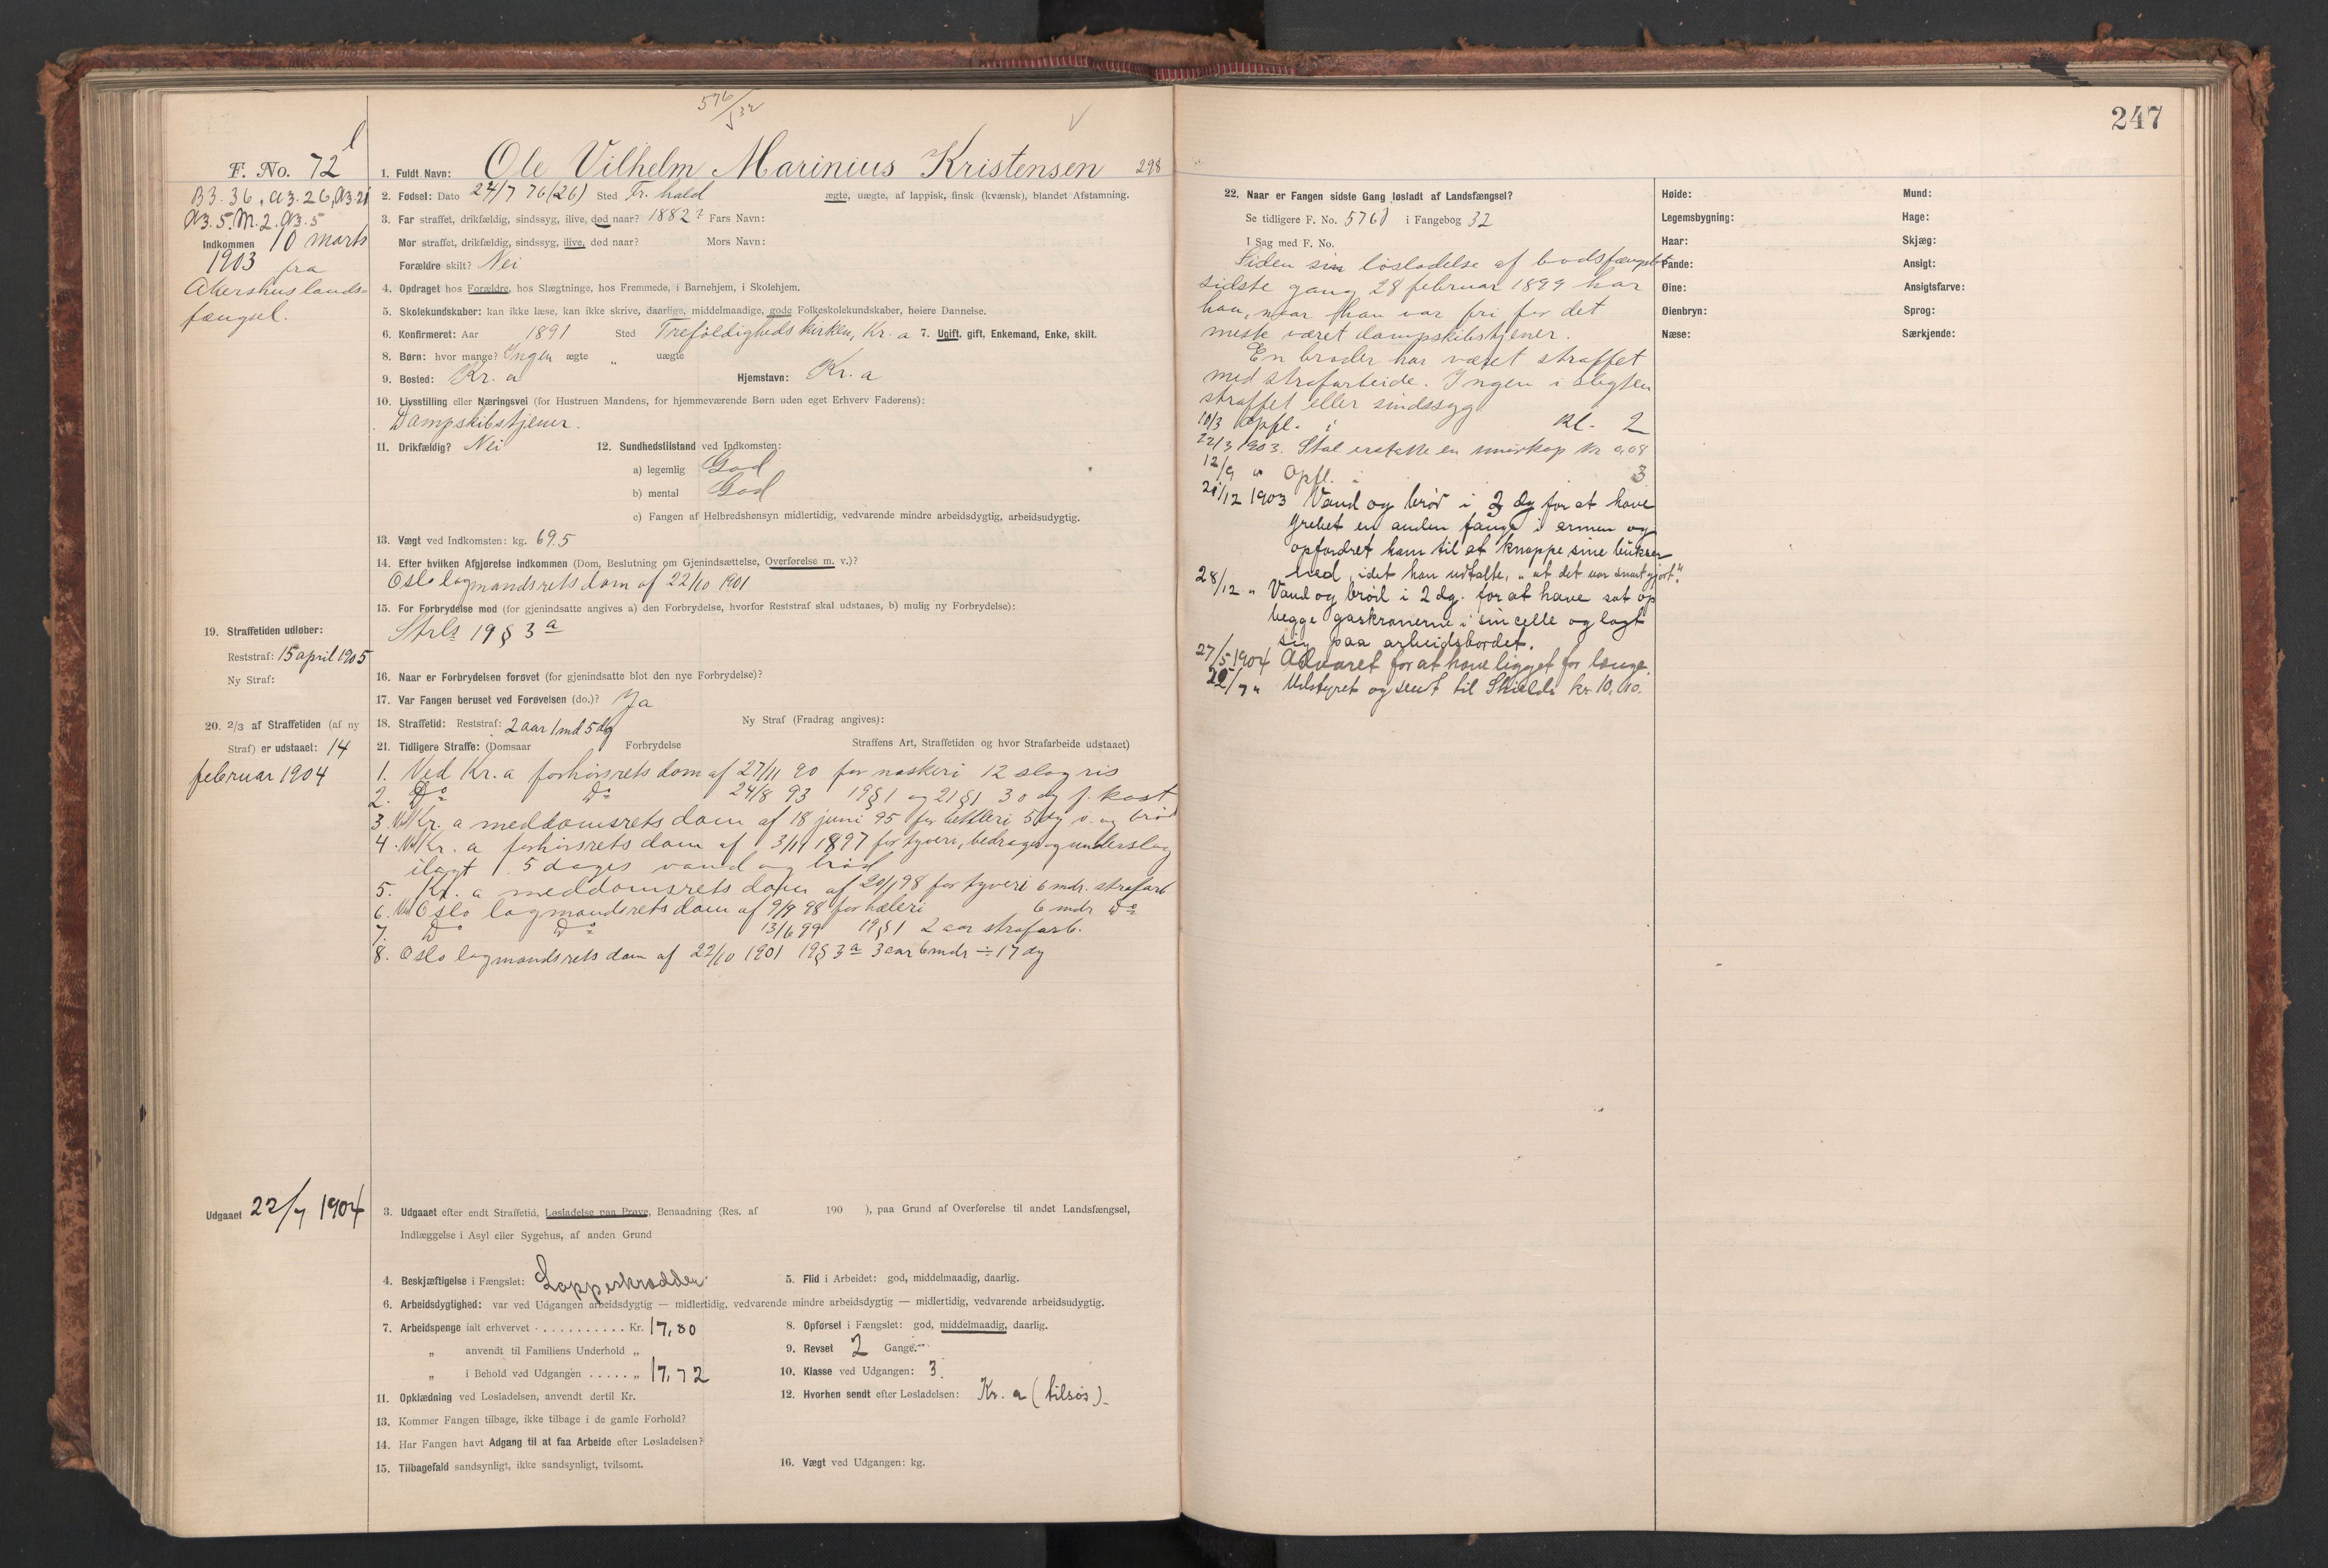 576/32
l
F. No. 72
B3.36, A3.26, A3.21
A3.5. M.2. A3.5
Indkommen 10 marts
1903 fra
Akershus lands-
fængsel.
19. Straffetiden udløber:
Reststraf: 15 april 1905
Ny Straf:
20. 2/3 af Straffetiden (af ny
Straf) er udstaaet: 14
februar 1904
Udgaaet 22/7 1904
1. Fuldt Navn: Ole Vilhelm Marinius Kristensen 298
2. Fødsel: Dato 24/7 76 (26) Sted Fr. hald ægte, uægte, af lappisk, finsk (kvænsk), blandet Afstamning.
3. Far straffet, drikfældig, sindssyg, ilive, død naar? 1882? Fars Navn:
Mor straffet, drikfældig, sindssyg, ilive, død naar? Mors Navn:
Forældre skilt? Nei
4. Opdraget hos Forældre, hos Slægtninge, hos Fremmede, i Barnehjem, i Skolehjem.
5. Skolekundskaber: kan ikke læse, kan ikke skrive, daarlige, middelmaadige, gode Folkeskolekundskaber, høiere Dannelse.
6. Konfirmeret: Aar 1891 Sted Trefoldigheds kirken, Kr. a 7. Ugift, gift, Enkemand, Enke, skilt.
8. Børn: hvor mange? Ingen ægte „ uægte
9. Bosted: Kr. a Hjemstavn: Kr. a
10. Livsstilling eller Næringsvei (for Hustruen Mandens, for hjemmeværende Børn uden eget Erhverv Faderens):
Dampskibstjener.
11. Drikfældig? Nei 12. Sundhedstilstand ved Indkomsten:
a) legemlig God
b) mental God
c) Fangen af Helbredshensyn midlertidig, vedvarende mindre arbeidsdygtig, arbeidsudygtig.
13. Vægt ved Indkomsten: kg. 69.5
14. Efter hvilken Afgjørelse indkommen (Dom, Beslutning om Gjenindsættelse, Overførelse m. v.)?
Oslo lagmandsrets dom af 22/10 1901
15. For Forbrydelse mod (for gjenindsatte angives a) den Forbrydelse, hvorfor Reststraf skal udstaaes, b) mulig ny Forbrydelse):
Strls 19 § 3 a
16. Naar er Forbrydelsen forøvet (for gjenindsatte blot den nye Forbrydelse)?
17. Var Fangen beruset ved Forøvelsen (do.)? Ja
18. Straffetid: Reststraf: 2 aar 1 md 5 dg Ny Straf (Fradrag angives):
21. Tidligere Straffe: (Domsaar Forbrydelse Straffens Art, Straffetiden og hvor Strafarbeide udstaaet)
1. Ved Kr. a forhørsrets dom af 27/11 90 for naskeri 12 slag ris
2. Do Do 24/8 93 19 § 1 og 21 § 1 30 dg f. kost
3. Ved Kr. a meddomsrets dom af 18 juni 95 for betleri 5 dg v. og brød
4. Ved Kr. a forhørsrets dom af 3/11 1897 for tyveri, bedrageri og underslag
ilagt 5 dages vand og brød
5. Kr. a meddomsrets dom af 20/1 98 for tyveri 6 mdr. strafarb
6. Ved Oslo lagmandsrets dom af 9/9 98 for hæleri 6 mdr do
7. Do Do 13/6 99 19 § 1 2 aar strafarb.
8. Oslo lagmandsrets dom af 22/10 1901 19 § 3 a 3 aar 6 mdr ÷ 17 dg
3. Udgaaet efter endt Straffetid, Løsladelse paa Prøve, Benaadning (Res. af 190 ), paa Grund af Overførelse til andet Landsfængsel,
Indlæggelse i Asyl eller Sygehus, af anden Grund
4. Beskjæftigelse i Fængslet: Lappeskrædder. 5. Flid i Arbeidet: god, middelmaadig, daarlig.
6. Arbeidsdygtighed: var ved Udgangen arbeidsdygtig — midlertidig, vedvarende mindre arbeidsdygtig — midlertidig, vedvarende arbeidsudygtig.
7. Arbeidspenge ialt erhvervet . . . . . . . . . . . Kr. 17,80 8. Opførsel i Fængslet: god, middelmaadig, daarlig.
„ anvendt til Familiens Underhold „ 9. Revset 2 Gange.
„ i Behold ved Udgangen . . . . . „ 17,72 10. Klasse ved Udgangen: 3.
11. Opklædning ved Løsladelsen, anvendt dertil Kr. 12. Hvorhen sendt efter Løsladelsen: Kr. a (tilsøs)
13. Kommer Fangen tilbage, ikke tilbage i de gamle Forhold?
14. Har Fangen havt Adgang til at faa Arbeide efter Løsladelsen?
15. Tilbagefald sandsynligt, ikke sandsynligt, tvilsomt. 16. Vægt ved Udgangen: kg.
247
22. Naar er Fangen sidste Gang løsladt af Landsfængsel?
Se tidligere F. No. 576 i Fangebog 32
I Sag med F. No.
Siden sin løsladelse af bodsfængslet
sidste gang 28 februar 1899 har
han, naar han var fri for det
meste været dampskibstjener.
En broder har været straffet
med strafarbeide. Ingen i slegten
straffet eller sindssyg.
10/3 Opfl. i Kl. 2
22/3 1903. Skal erstatte en smørkop Kr 0,08
12/9 " Opfl. " 3
21/12 1903 Vand og brød i 3 dg for at have
grebet en anden fange i armen og
opfordret ham til at knappe sine bukser
ned, idet han udtalte, „at det var snart gjort".
28/12 " Vand og brød i 2 dg. for at have sat op
begge gaskranerne i sin celle og lagt
sig paa arbeidsbordet.
27/5 1904 Advaret for at have ligget for længe.
22/7 " Udstyret og sendt til Skieldi kr. 10,00.
Høide:
Legemsbygning:
Haar:
Pande:
Øine:
Øienbryn:
Næse:
Mund:
Hage:
Skjæg:
Ansigt:
Ansigtsfarve:
Sprog:
Særkjende: